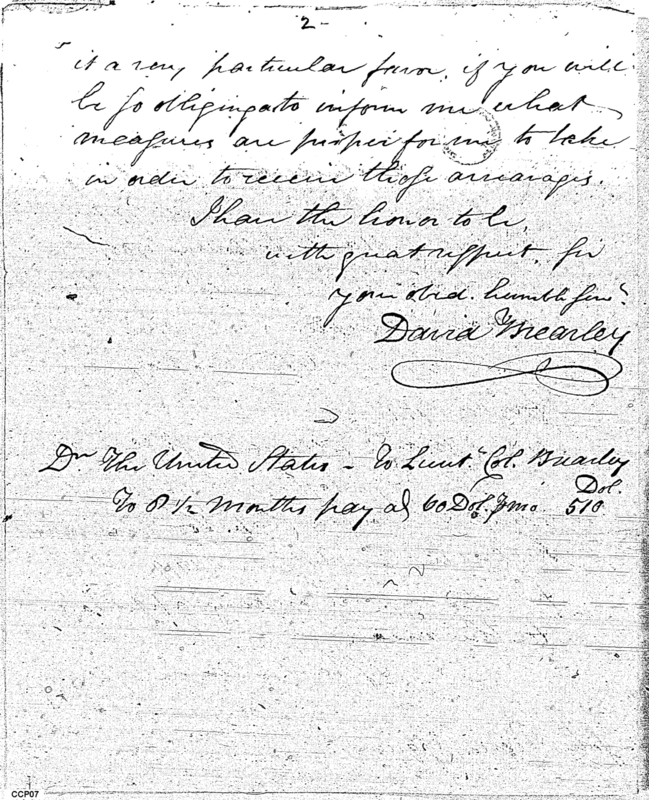 2 -
it a very particular favor, if you will
be so obliging as to inform me what
measures are proper for me to take
in order to receive those arrearages.
I have the honor to be,
with great respect, Sir
your obed. humble Servt.
David Brearley
Dr. The United States - To Lieut. Col. Brearley
Dol.
To 8 1/2 Months pay at 60 Dol. ⅌ mo. 510
CCP07